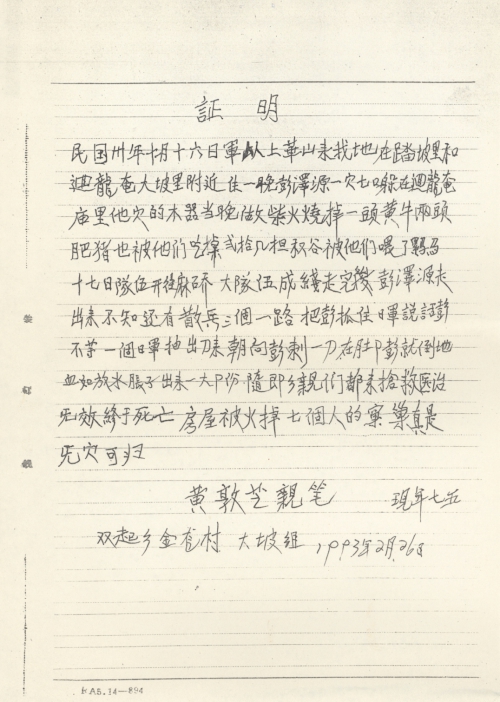 証 明
民国卅年十月十六日軍从上華山来我地在踏坡里和
迴龍奄大坡里附近住一晚彭澤源一穴七口躲在迴龍奄
庙里他穴的木器当晚做柴火燒掉一頭黄牛兩頭
肥猪也被他们吃掉式拾几担秋谷被他們喂了馬
十七日隊伍开往麻硚 大隊伍成綫走完後彭澤源走
出来不知还有散兵三個一路把彭抓住日軍説話彭
不答一個日軍抽出刀来朝向彭刺一刀在肚卩彭就倒地
血如放水腸子出来一大卩份 隨即乡親们都来搶救医治
无效終于死亡 房屋被火掉七個人的窝巢真是
无穴可归
黄敦芝親笔 現年七五
双起乡金龙村 大坡組 1993年2月26日
装
訂
綫
BA5.14—894